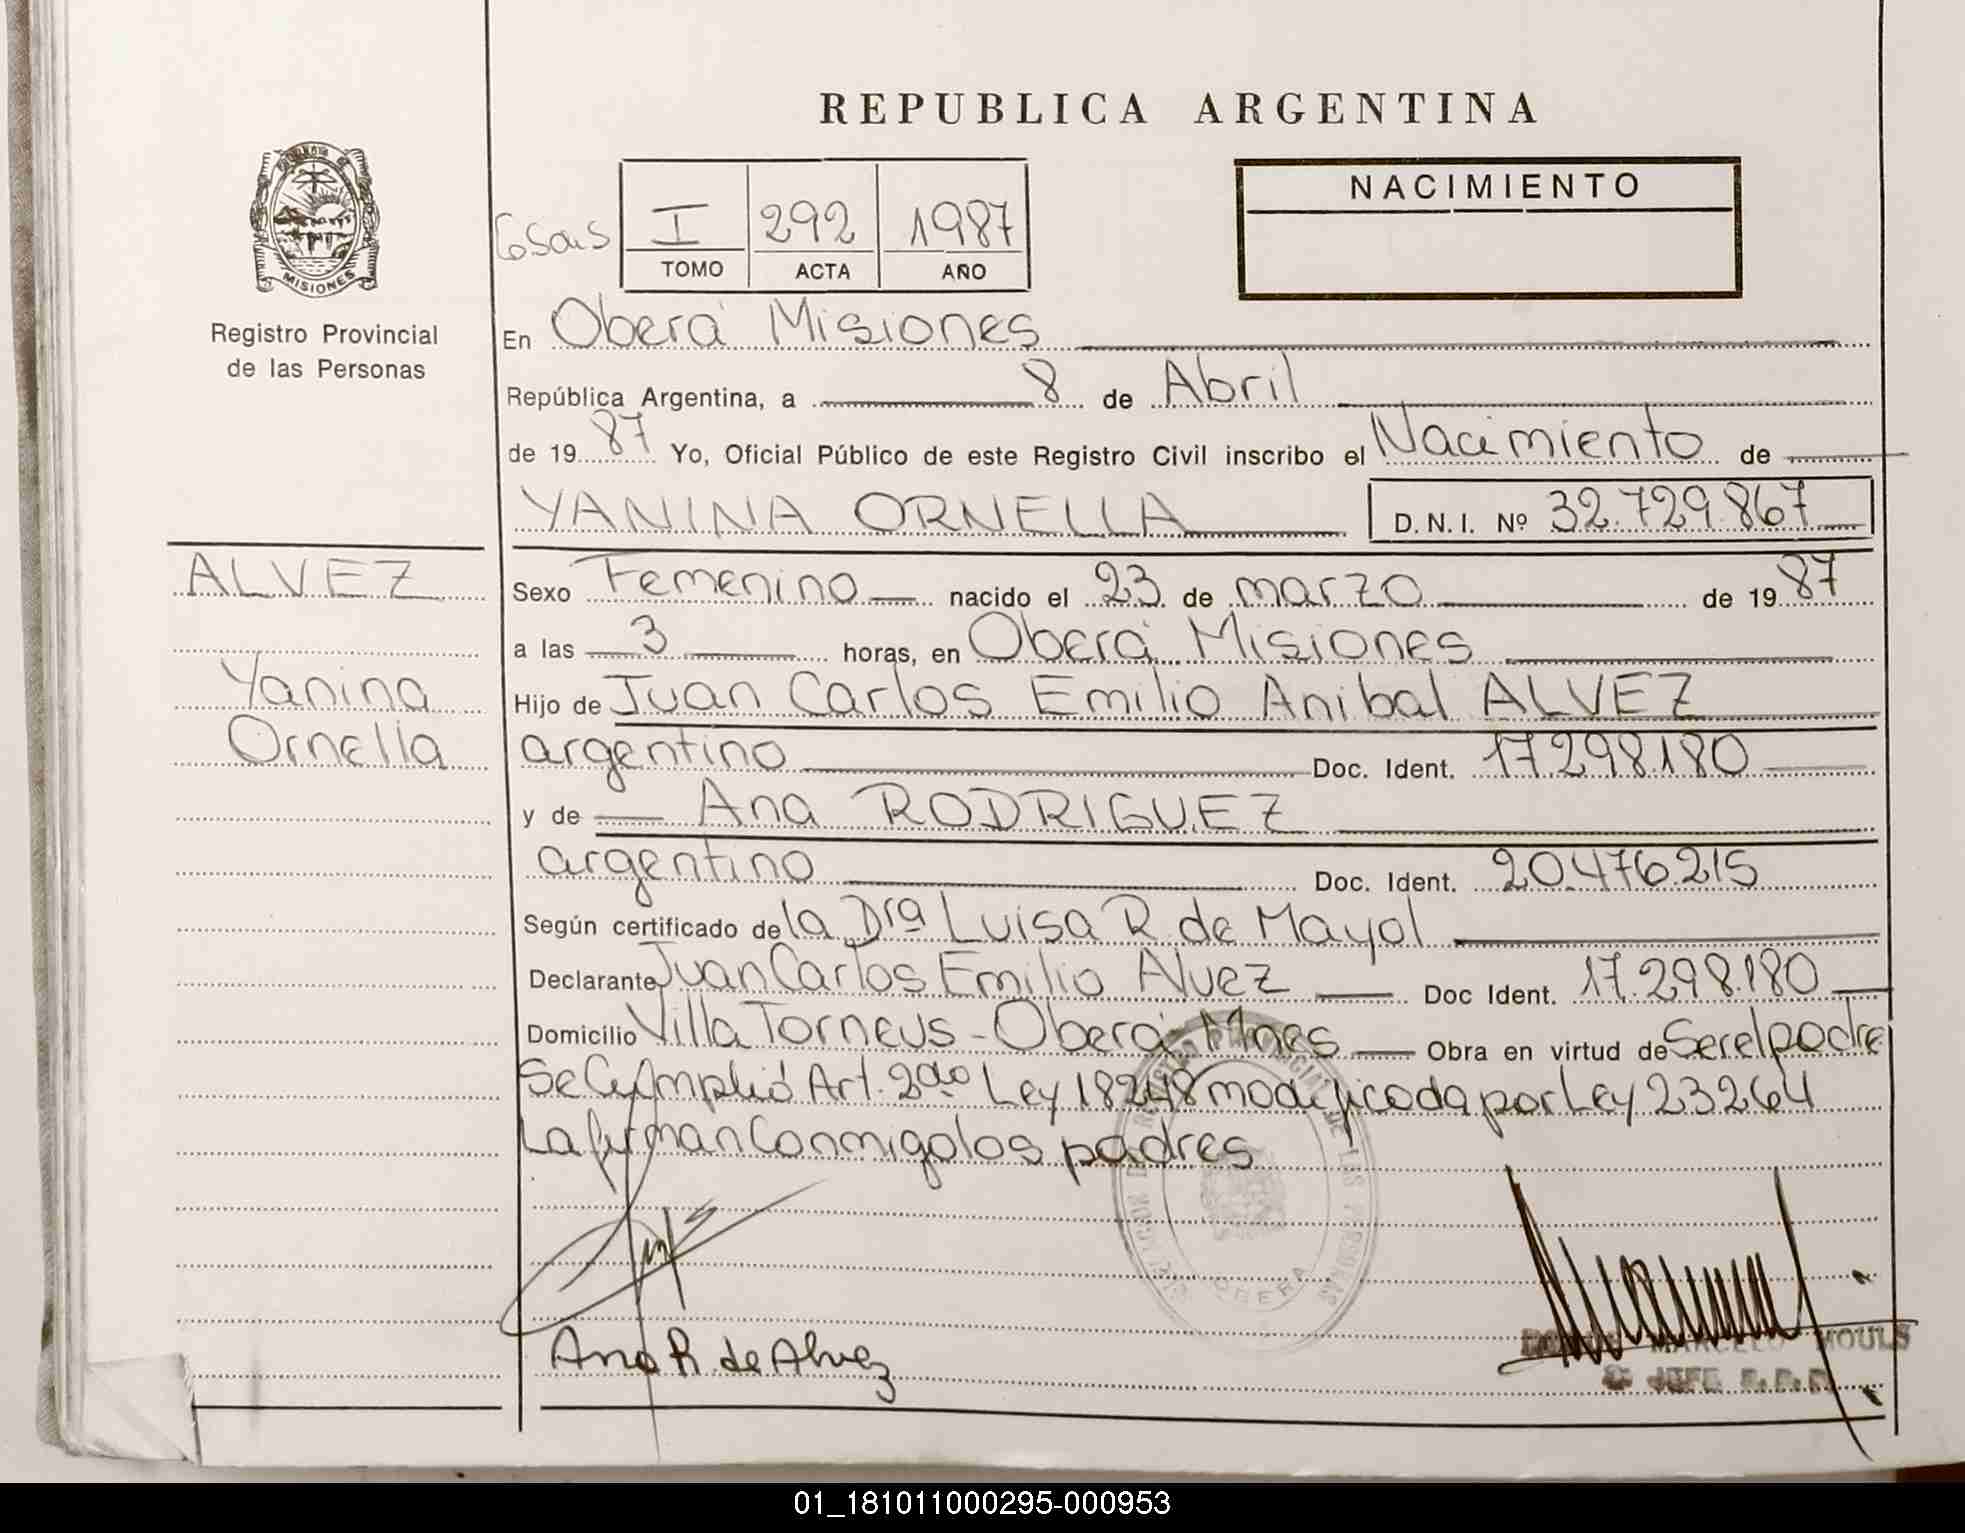 REPUBLICA ARGENTINA
PROVINCIA DE
MISIONES
Registro Provincial
de las Personas
I 292 1987
TOMO ACTA AÑO
NACIMIENTO
En Oberá Misiones
República Argentina, a 8 de Abril
de 1987 Yo, Oficial Público de este Registro Civil inscribo el Nacimiento de
YANINA ORNELLA D.N.I. Nº 32.729.867
ALVEZ
Yanina
Ornella
Sexo Femenino nacido el 23 de marzo de 1987
a las 3 horas, en Oberá Misiones
Hijo de Juan Carlos Emilio Anibal ALVEZ
argentino Doc. Ident. 17.298.180
y de Ana RODRIGUEZ
argentino Doc. Ident. 20.476.215
Según certificado de la Dra Luisa R. de Mayol
Declarante Juan Carlos Emilio Alvez Doc Ident. 17.298.180
Domicilio Villa Torneus - Oberá Mnes Obra en virtud de Ser el padre
Se Cumplió Art. 2do Ley 18248 modificada por Ley 23264
La firman Conmigo los padres
OBERA
Ana R. de Alvez
MARCELO MOULS
JEFE R.P.P.
01_181011000295-000953